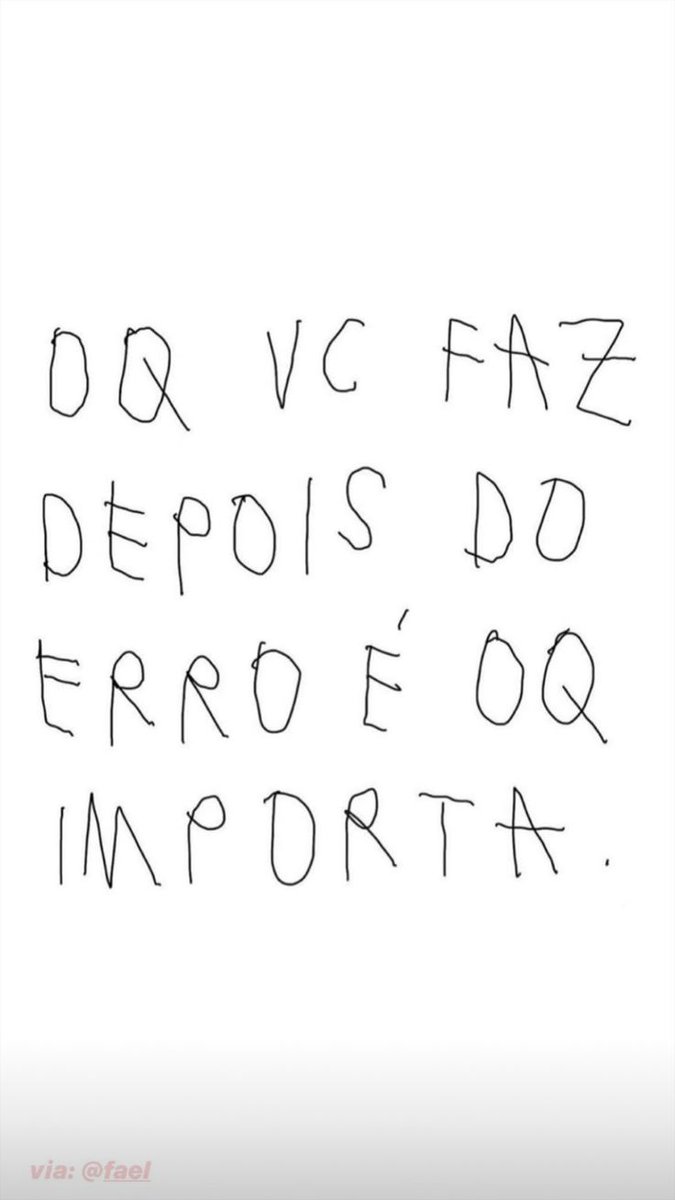 OQ VC FAZ
DEPOIS DO
ERRO É OQ
IMPORTA.
via: @fael